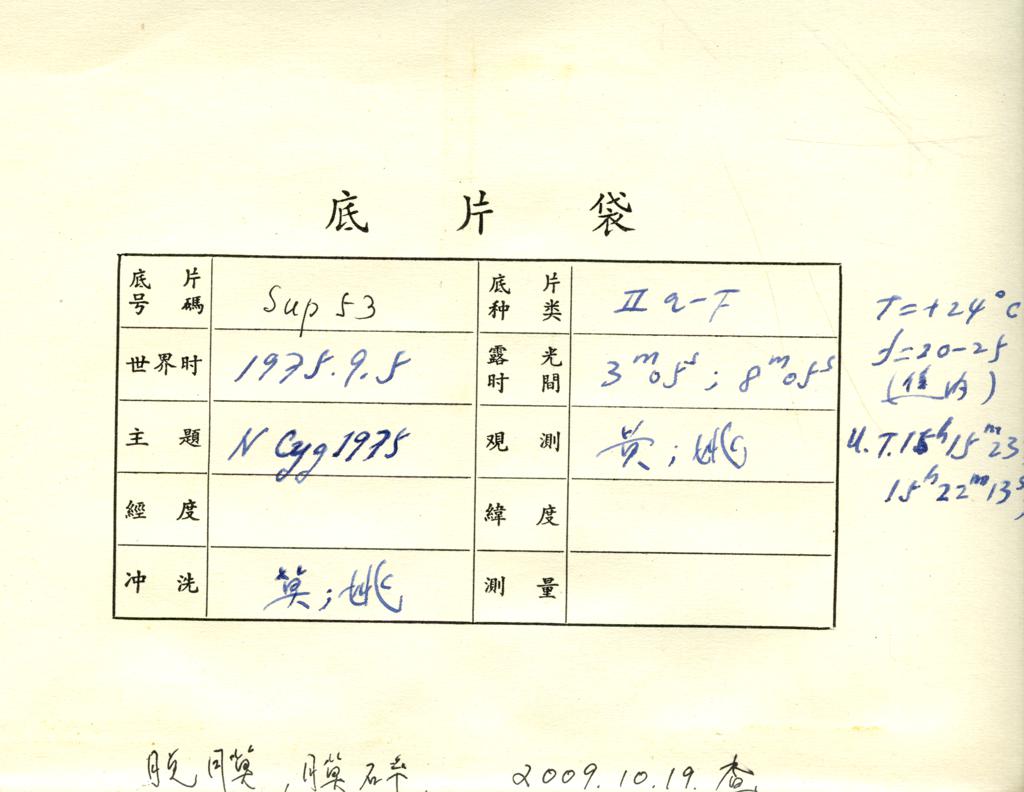 底片袋
底片号碼 Sup 53 底片种类 IIa-F
世界时 1975.9.5 露光时間 3ᵐ05ˢ; 8ᵐ05ˢ
主題 N Cyg 1975 观測 黄;姚
經度 緯度
冲洗 莫;姚 測量
T=+24°C
f=20-25
U.T.15ʰ15ᵐ23
15ʰ22ᵐ13ˢ
脱膜,膜碎. 2009.10.19.查